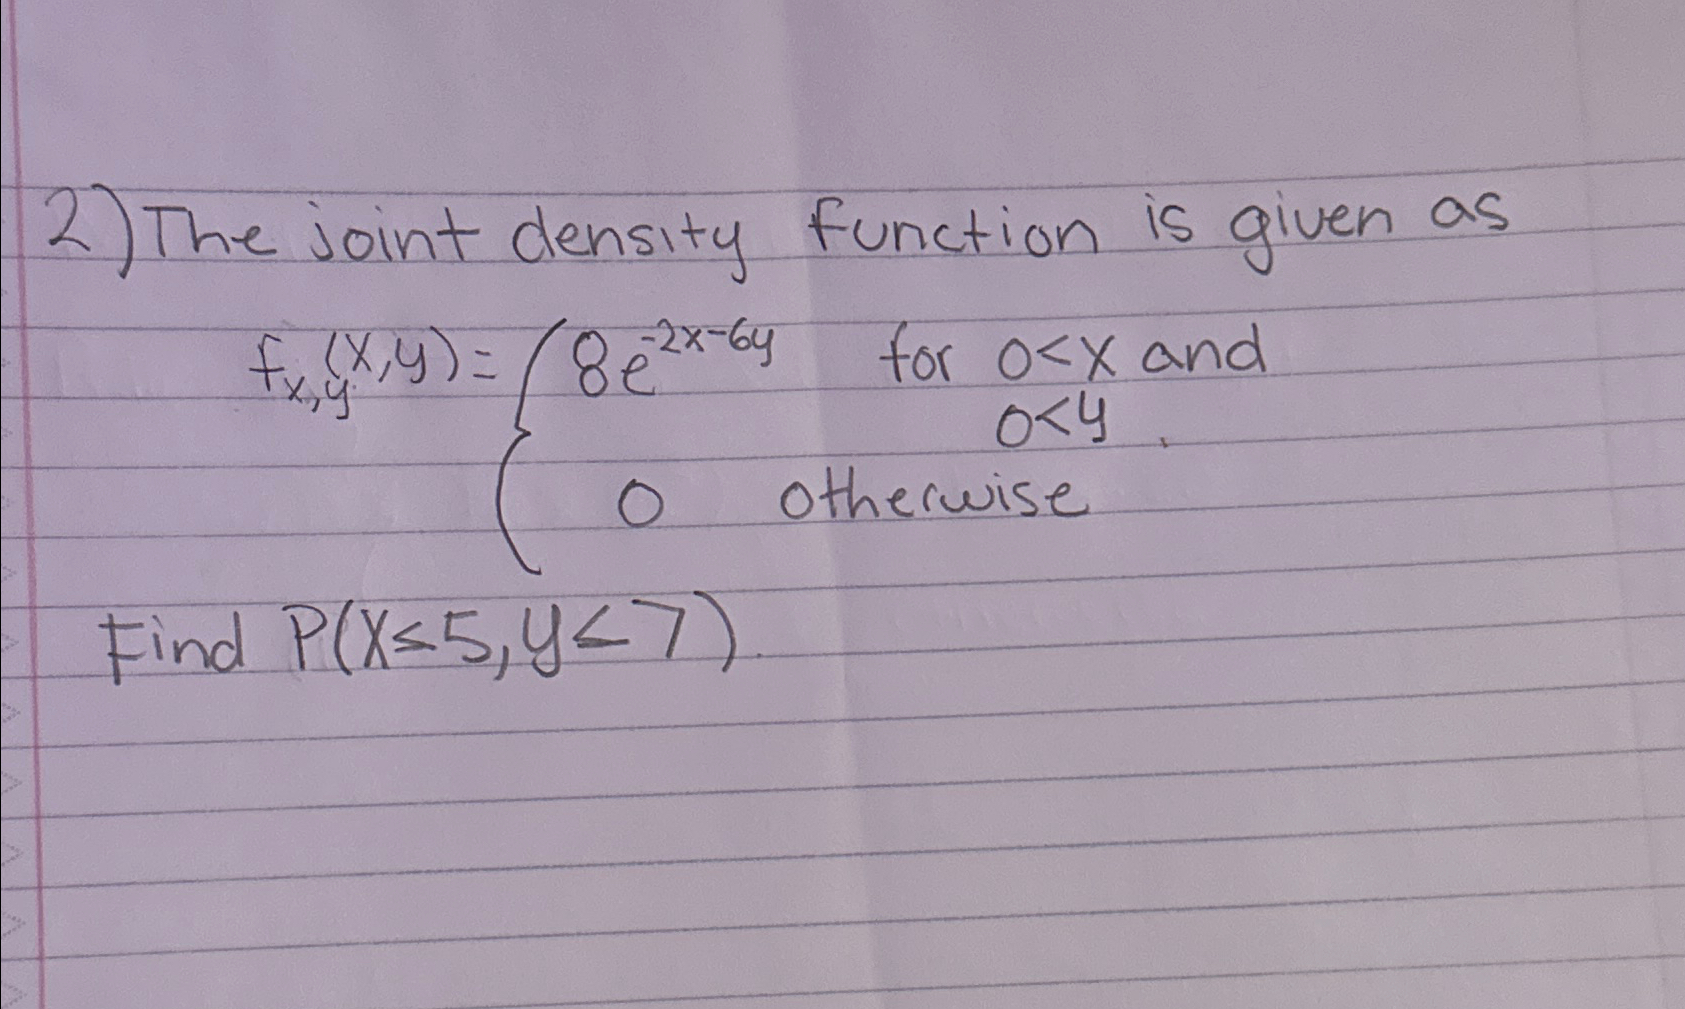 2) The joint density function is given as
f_{x,y}(x,y) = { 8e^{-2x-6y} for 0<x and
0<y.
0 otherwise
Find P(X≤5, y≤7).